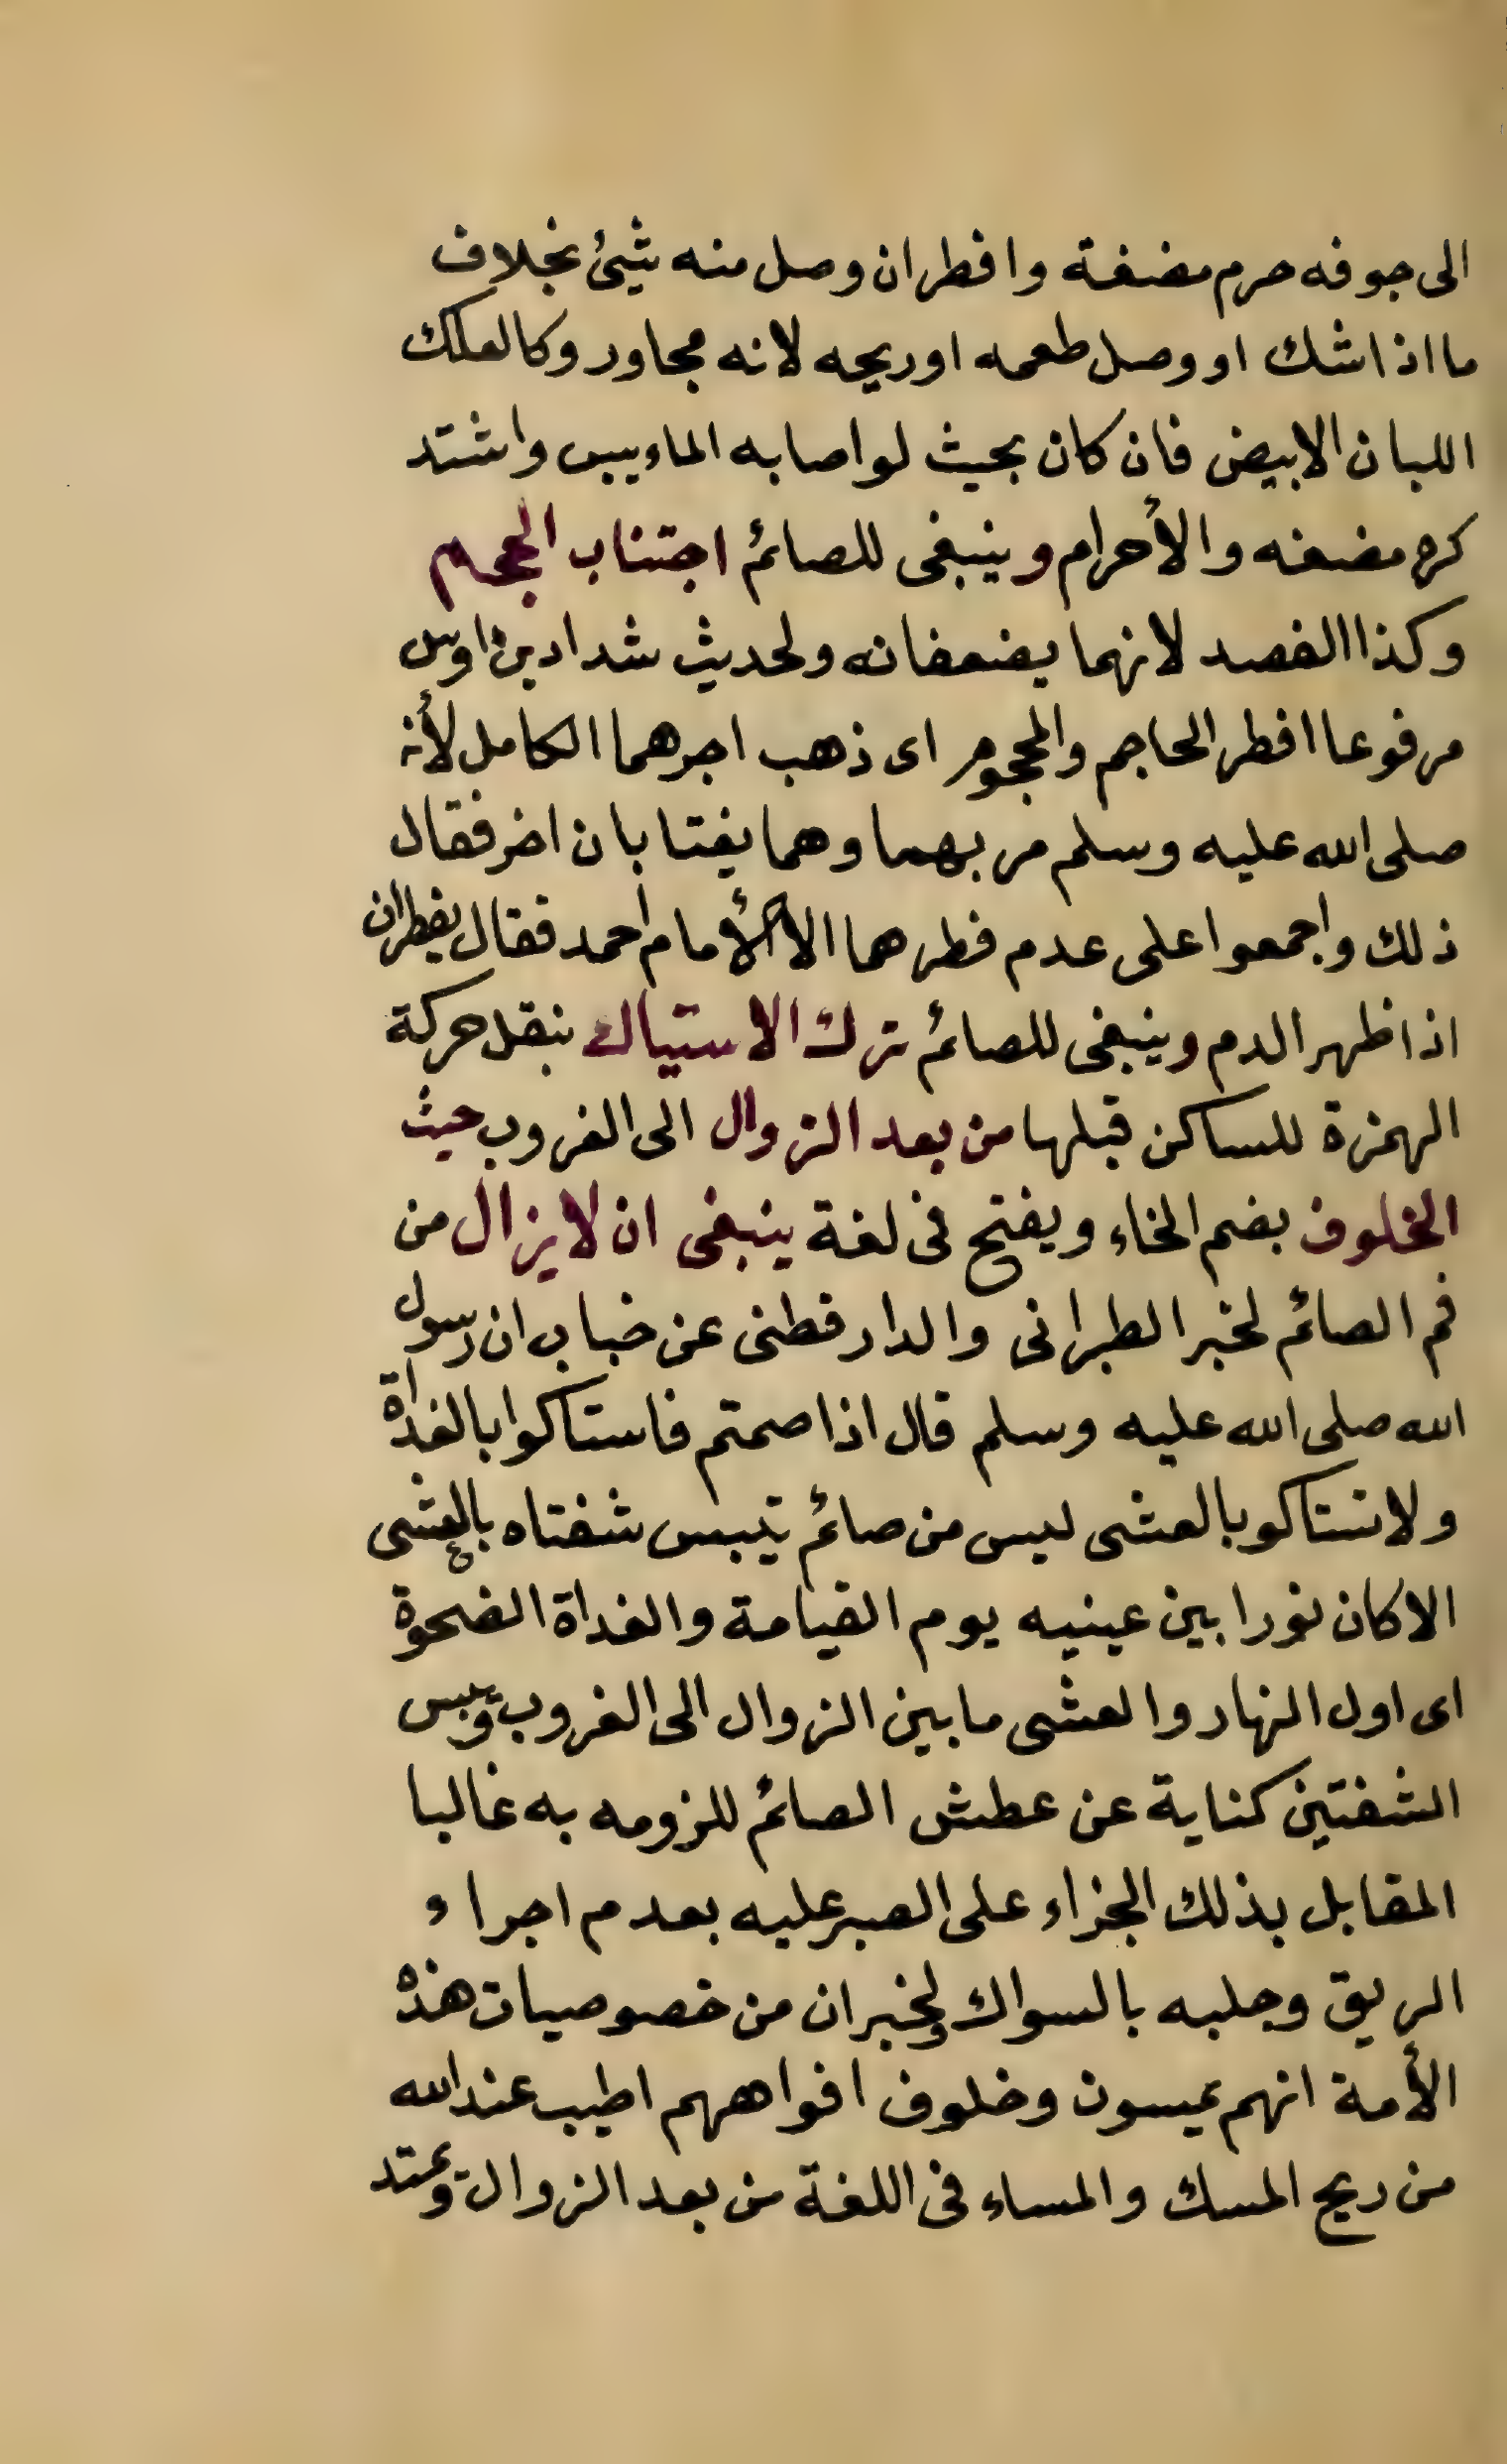 الى جوفه حرم مضغة وافطران وصل منه شيئ بخلاف
ما اذا شك او وصل طعمه او ريحه لانه مجاور وكالعلك
اللبان الابيض فان كان بحيث لو اصابه الماء يبس واشتد
كره مضغه والأحرام وينبغى للصائم اجتناب الحجم
وكذا الفصد لانهما يضعفانه ولحديث شداد بن اوس
مرفوعا افطر الحاجم والمحجوم اى ذهب اجرهما الكامل لأنه
صلى الله عليه وسلم مر بهما وهما يغتابان اخر فقال
ذلك واجمعوا على عدم فطرهما الا الأمام احمد فقال يفطران
اذا ظهر الدم وينبغى للصائم ترك الاستياك بنقل حركة
الهمزة للساكن قبلها من بعد الزوال الى الغروب حيث
الخلوف بضم الخاء ويفتح فى لغة ينبغى ان لا يزال من
فم الصائم لخبر الطبرانى والدارقطنى عن خباب ان رسول
الله صلى الله عليه وسلم قال اذا صمتم فاستاكوا بالغداة
ولا تستاكو بالعشى ليس من صائم تيبس شفتاه بالعشى
الا كان نورا بين عينيه يوم القيامة والغداة الضحوة
اى اول النهار والعشى ما بين الزوال الى الغروب ويبس
الشفتين كناية عن عطش الصائم للزومه به غالبا
المقابل بذلك الجزاء على الصبر عليه بعدم اجراء
الريق وجلبه بالسواك ولخبر ان من خصوصيات هذه
الأمة انهم يمسون وخلوف افواههم اطيب عند الله
من ريح المسك والمساء فى اللغة من بعد الزوال ويمتد